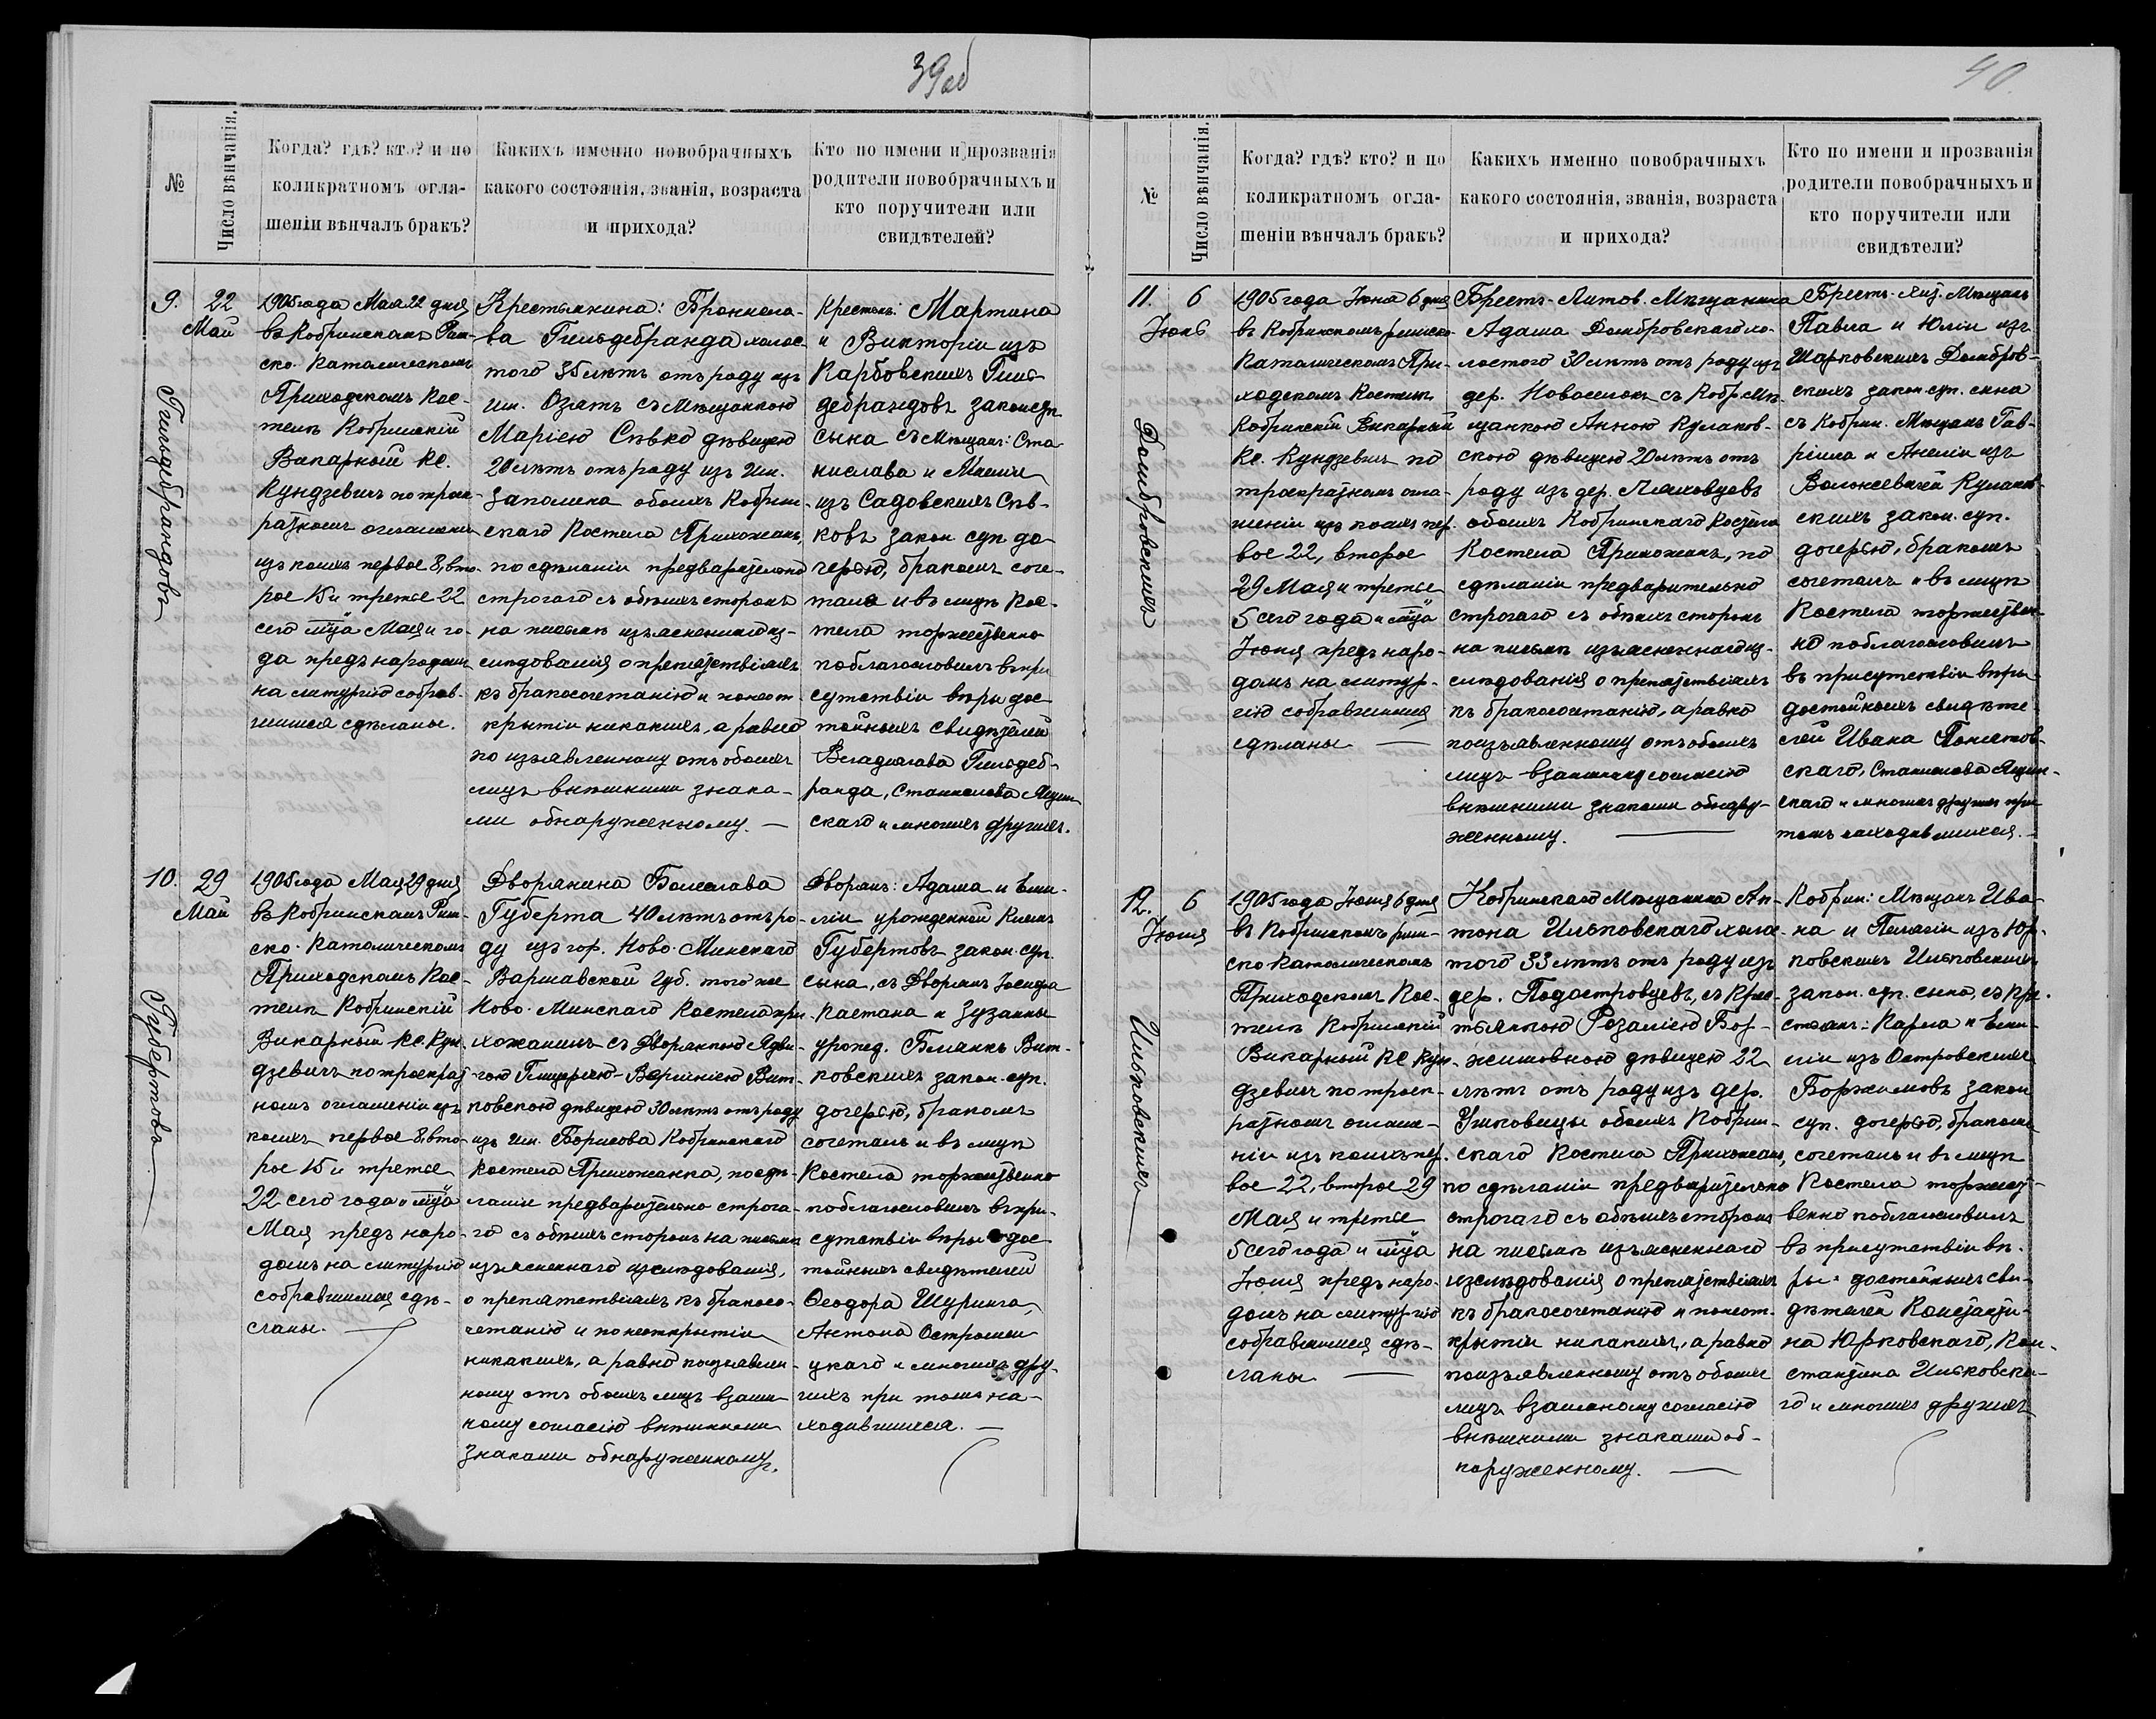 39об
№
Число вѣнчанія.
Когда? гдѣ? кто? и по
коликратномъ огла-
шеніи вѣнчалъ бракъ?
Какихъ именно новобрачныхъ
какого состоянія, званія, возраста
и прихода?
Кто по имени и прозванія
родители новобрачныхъ и
кто поручители или
свидѣтелей?
9.
22
Май
Гильдебрандовъ
1905 года Мая 22 дня
въ Кобринскомъ Рим-
ско-Католическомъ
Приходскомъ Кос-
телѣ Кобринскій
Викарный Кс.
Кундзевичъ по трое-
кратномъ оглашеніи
изъ коихъ первое 8, вто-
рое 15 и третье 22
сего мца Мая и го-
да предъ народомъ
на литургію собрав-
шимся сдѣланы.
Крестьянина: Бронисла-
ва Гильдебранда холос-
того 35 лѣтъ отъ роду изъ
им. Озятъ съ Мѣщанкою
Маріею Сѣвко дѣвицею
20 лѣтъ отъ роду изъ им.
Заполика обоихъ Кобрин-
скаго Костела Прихожанъ,
по сдѣланіи предварительно
строгаго съ обѣихъ сторонъ
на письмѣ изъясненнаго из-
слѣдованія о препятствіяхъ
къ бракосочетанію и неот-
крытіи никакихъ, а равно
по изъявленному отъ обоихъ
лицъ внѣшними знака-
ми обнаруженному. —
Крестьян: Мартина
и Викторіи изъ
Карбовскихъ Гиль-
дебрандовъ закон суп.
сына съ Мѣщан: Ста-
нислава и Маріи
изъ Садовскихъ Сѣв-
ковъ закон суп до-
черью, бракомъ соче-
талъ и въ лицѣ Кос-
тела торжественно
поблагословилъ въ при-
сутствіи вѣры дос-
тойныхъ свидѣтелей
Владислава Гильдеб-
ранда, Станислава
скаго и многихъ другихъ.
10.
29
Май
Губертовъ
1905 года Мая 29 дня
въ Кобринскомъ Рим-
ско-Католическомъ
Приходскомъ Кос-
телѣ Кобринскій
Викарный Кс. Кун-
дзевичъ по троекрат-
номъ оглашеніи изъ
коихъ первое 8, вто-
рое 15 и третье
22 сего года и мца
Мая предъ наро-
домъ на литургію
собравшимся сдѣ-
ланы. —
Дворянина Болеслава
Губерта 40 лѣтъ отъ ро-
ду изъ гор. Ново-Минскаго
Варшавской Губ. того же
Ново-Минскаго Костела при-
хожанинъ съ Дворянкою Ядви-
гою Вит-
ковскою дѣвицею 30 лѣтъ отъ роду
изъ им. Борисова Кобринскаго
Костела Прихожанка, по сдѣ-
ланіи предварительно строга-
го съ обѣихъ сторонъ на письмѣ
изъясненнаго изслѣдованія,
о препятствіяхъ къ бракосо-
четанію и по неоткрытіи
никакихъ, а равно по изъявлен-
ному отъ обоихъ лицъ взаим-
ному согласію внѣшними
знаками обнаруженному.
Дворянъ: Адама и Еми-
ліи урожденной
Губертовъ закон. суп.
сына, съ Дворянъ Іосифа
Каетана и Зузанны
урожд. Вит-
ковскихъ закон. суп.
дочерью, бракомъ
сочеталъ и въ лицѣ
Костела торжественно
поблагословилъ въ при-
сутствіи вѣры дос-
тойныхъ свидѣтелей
Ѳеодора Шуринга,
Антона Остромен-
цкаго и многихъ дру-
гихъ при томъ на-
ходившихся. —
40.
№
Число вѣнчанія.
Когда? гдѣ? кто? и по
коликратномъ огла-
шеніи вѣнчалъ бракъ?
Какихъ именно новобрачныхъ
какого состоянія, званія, возраста
и прихода?
Кто по имени и прозванія
родители новобрачныхъ и
кто поручители или
свидѣтели?
11.
6
Іюнь
Домбровскихъ
1905 года Іюня 6 дня
въ Кобринскомъ римско-
Католическомъ При-
ходскомъ Костелѣ
Кобринскій Викарный
Кс. Кундзевичъ по
троекратномъ огла-
шеніи изъ коихъ пер-
вое 22, второе
29 Мая и третье
5 сего года и мца
Іюня предъ наро-
домъ на литур-
гію собравшимся
сдѣланы —
Брестъ-Литов. Мѣщанина
Адама Домбровскаго хо-
лостого 30 лѣтъ отъ роду изъ
дер. Новоселокъ съ Кобр. Мѣ-
щанкою Анною Кулаков-
скою дѣвицею 20 лѣтъ отъ
роду изъ дер. Ляховцовъ
обоихъ Кобринскаго Костела
Костела Прихожанъ, по
сдѣланіи предварительно
строгаго съ обѣихъ сторонъ
на письмѣ изъясненнаго из-
слѣдованія о препятствіяхъ
къ бракосочетанію, а равно
по изъявленному отъ обоихъ
лицъ взаимному согласію
внѣшними знаками обнару-
женному. —
Брестъ-Лит. Мѣщанъ
Павла и Юліи изъ
Шарковскихъ Домбров-
скихъ закон суп. сына
съ Кобрин. Мѣщанъ Гав-
ріила и Анеліи изъ
Кулаков-
скихъ закон. суп.
дочерью, бракомъ
сочеталъ и въ лицѣ
Костела торжествен-
но поблагословилъ
въ присутствіи вѣры
достойныхъ свидѣте-
лей Ивана Понятов-
скаго, Станислава
скаго и многихъ другихъ при
томъ находившихся. —
12.
6
Іюня
Ильковскихъ
1905 года Іюня 6 дня
въ Кобринскомъ рим-
ско-Католическомъ
Приходскомъ Кос-
телѣ Кобринскій
Викарный Кс Кун-
дзевичъ по троек-
ратномъ оглаше-
ніи изъ коихъ пер-
вое 22, второе 29
Мая и третье
5 сего года и мца
Іюня предъ наро-
домъ на литургію
собравшимся сдѣ-
ланы —
Кобринскаго Мѣщанина Ан-
тона Ильковскаго холос-
того 33 лѣтъ отъ роду изъ
дер. Подостровцевъ, съ Крес-
тьянкою Розаліею Бор-
жимовною дѣвицею 22
лѣтъ отъ роду изъ дер.
обоихъ Кобрин-
скаго Костела Прихожанъ,
по сдѣланіи предварительно
строгаго съ обѣихъ сторонъ
на письмѣ изъясненнаго
изслѣдованія о препятствіяхъ
къ бракосочетанію и неот-
крытіи никакихъ, а равно
по изъявленному отъ обоихъ
лицъ взаимному согласію
внѣшними знаками об-
наруженному. —
Кобрин: Мѣщанъ Ива-
на и Пелагіи изъ Юр-
ковскихъ Ильковскихъ
закон. суп. сына, съ Кре-
стьянъ: Карла и Еми-
ліи изъ Островскихъ
Боржимовъ закон
суп. дочерью, бракомъ
сочеталъ и въ лицѣ
Костела торжест-
венно поблагословилъ
въ присутствіи вѣ-
ры достойныхъ сви-
дѣтелей Константи-
на Юрковскаго, Кон-
стантина Ильковска-
го и многихъ другихъ